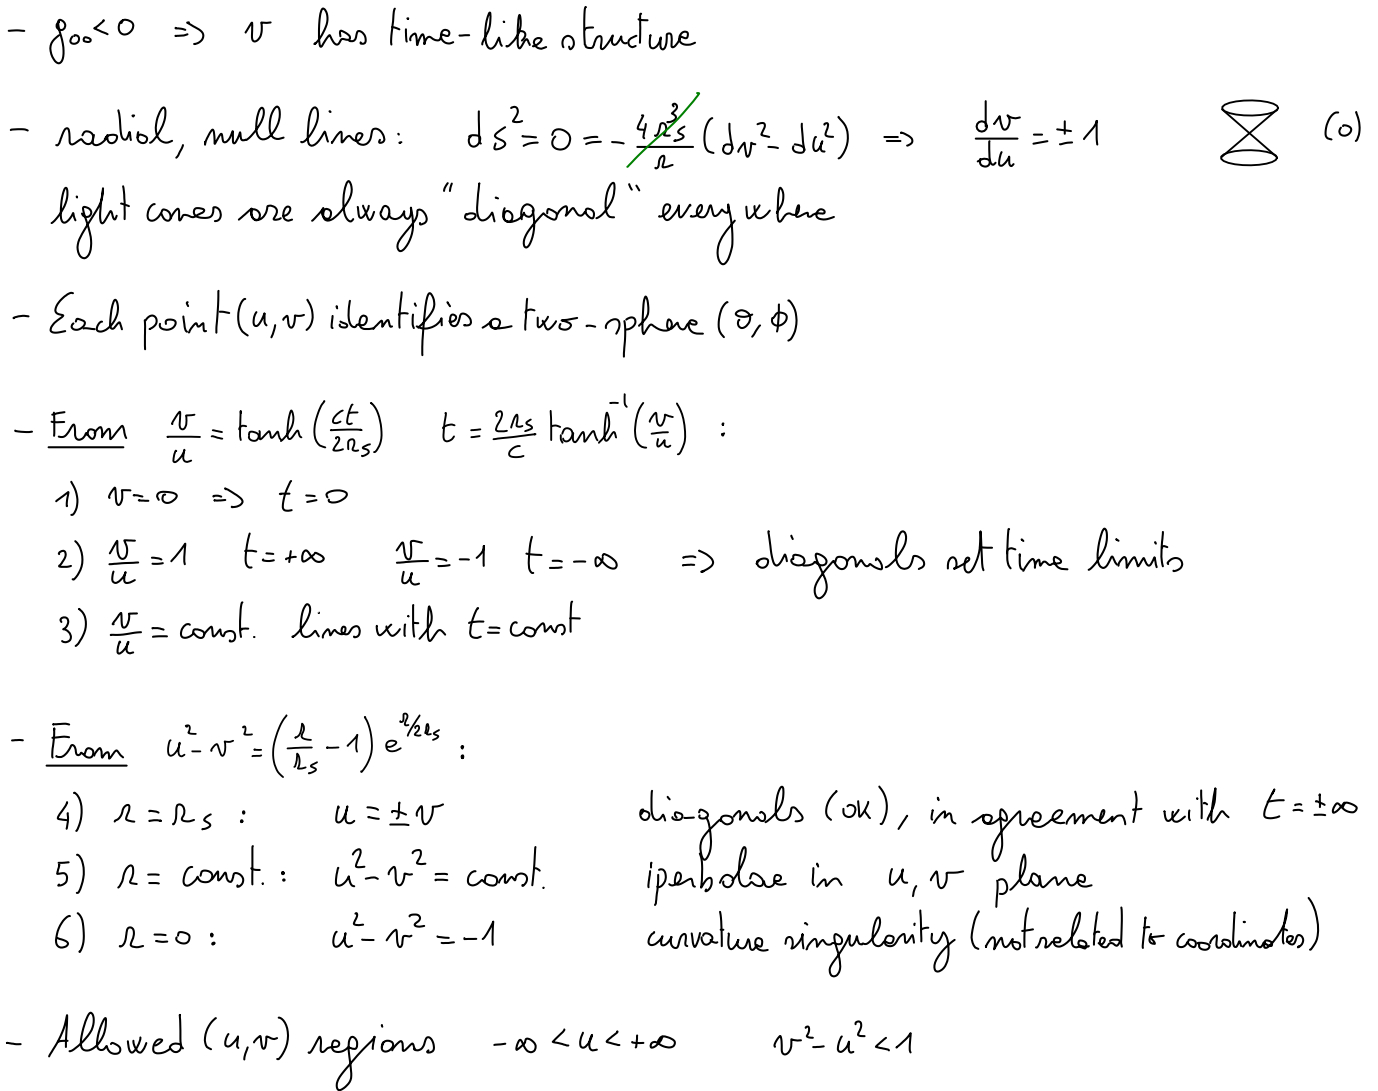 - g₀₀<0 => v has time-like structure
- radial, null lines: ds²=0=-4r_s³/r (dv²-du²) => dv/du = ±1 (o)
light cones are always "diagonal" everywhere
- Each point (u,v) identifies a two-sphere (θ, φ)
- From v/u = tanh (ct/2r_s) t = 2r_s/c tanh⁻¹(v/u) :
1) v=0 => t=0
2) v/u = 1 t=+∞ v/u = -1 t=-∞ => diagonals set time limits
3) v/u = const. lines with t=const
- From u²-v²=(r/r_s - 1) e^(r/2r_s) :
4) r=r_s : u=±v diagonals (OK), in agreement with t=±∞
5) r= const. : u²-v²= const. iperbolae in u, v plane
6) r=0 : u²-v²=-1 curvature singularity (not related to coordinates)
- Allowed (u,v) regions -∞<u<+∞ v²-u²<1